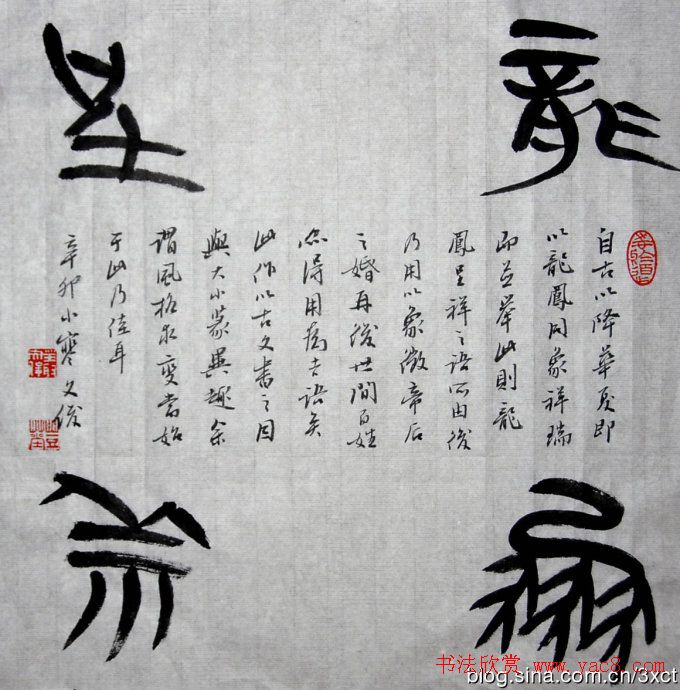 龍鳳
呈祥
自古以降華夏即
以龍鳳同象祥瑞
即並舉此則龍
鳳呈祥之語所由後
乃用以象徵帝后
之婚再後世間百姓
亦得用為吉語矣
此作以古文書之因
與大小篆異趣余
謂風格求變當始
于此乃佳耳
辛卯小寒文俊
书法欣赏 www.yac8.com
blog.sina.com.cn/3xct